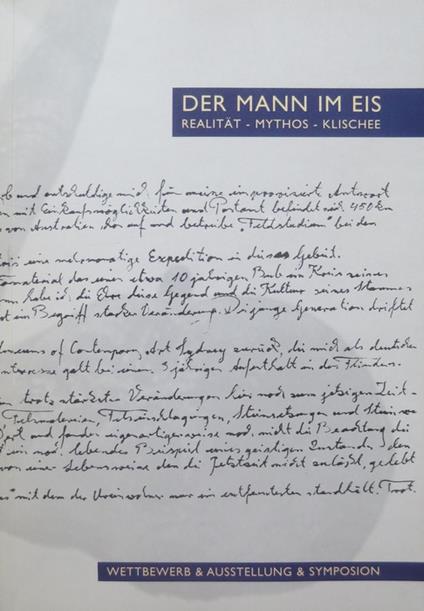 DER MANN IM EIS
REALITÄT - MYTHOS - KLISCHEE
und entschuldige mich für meine improvisierte Antwort
mit Einkaufsmöglichkeiten und Postamt befindet sich 450 km
von Australien auf und betreibe "Feldstudien" bei den
eine mehrmonatige Expedition in dieses Gebiet.
das einen etwa 10 jährigen Bub im Kreis seines
habe ich die Ehre diese Gegend und die Kultur seines Stammes
im Begriff starker Veränderung. Die junge Generation driftet
of Contemporary Art Sydney zurück, die mich als deutschen
Interesse galt bei einem 3 jährigen Aufenthalt in den Flinders.
trotz stärkster Veränderungen hier noch zum jetzigen Zeit-
Felsmalereien, Felseinschlagungen, Steinsetzungen und
und fanden eigenartigerweise noch nicht die Beachtung die
ein noch lebendes Beispiel eines geistigen Zustandes den
von einer Lebensweise den die Jetztzeit nicht zulässt, gelebt
mit dem der Ureinwohner nur im entferntesten standhält. Trotz
WETTBEWERB & AUSSTELLUNG & SYMPOSION